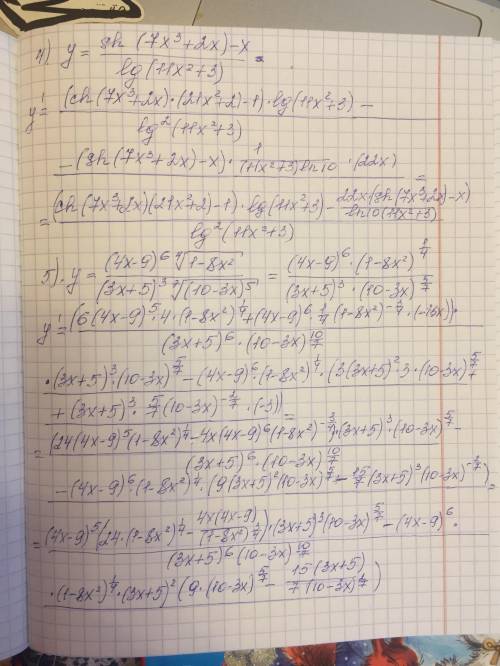 4) y = sh (7x³+2x)-x / lg (11x²+3)
y' = (ch(7x³+2x)·(21x²+2)-1)·lg(11x²+3) -
lg²(11x²+3)
-(sh(7x³+2x)-x)· 1/((11x²+3)ln10) ·(22x) =
= (ch(7x³+2x)(21x²+2)-1)·lg(11x²+3) - 22x(sh(7x³+2x)-x)/(ln10(11x²+3))
lg²(11x²+3)
5). y = (4x-9)⁶ ⁴√(1-8x²) / (3x+5)³ ⁷√((10-3x)⁵) = (4x-9)⁶·(1-8x²)^(1/4) / (3x+5)³·(10-3x)^(5/7)
y' = (6(4x-9)⁵·4·(1-8x²)^(1/4)+(4x-9)⁶·1/4(1-8x²)^(-3/4)·(-16x))·
(3x+5)⁶·(10-3x)^(10/7)
·(3x+5)³·(10-3x)^(5/7) - (4x-9)⁶·(1-8x²)^(1/4)·(3(3x+5)²·3·(10-3x)^(5/7) +
+ (3x+5)³·5/7(10-3x)^(-2/7)·(-3)) =
= (24(4x-9)⁵(1-8x²)^(1/4) - 4x(4x-9)⁶(1-8x²)^(-3/4))·(3x+5)³·(10-3x)^(5/7) -
(3x+5)⁶·(10-3x)^(10/7)
-(4x-9)⁶·(1-8x²)^(1/4)·(9(3x+5)²(10-3x)^(5/7) - 15/7(3x+5)³(10-3x)^(-2/7)) =
= (4x-9)⁵(24·(1-8x²)^(1/4) - 4x(4x-9)/(1-8x²)^(3/4))·(3x+5)³(10-3x)^(5/7) - (4x-9)⁶·
(3x+5)⁶(10-3x)^(10/7)
·(1-8x²)^(1/4)·(3x+5)²(9·(10-3x)^(5/7) - 15(3x+5)/(7(10-3x)^(2/7)))